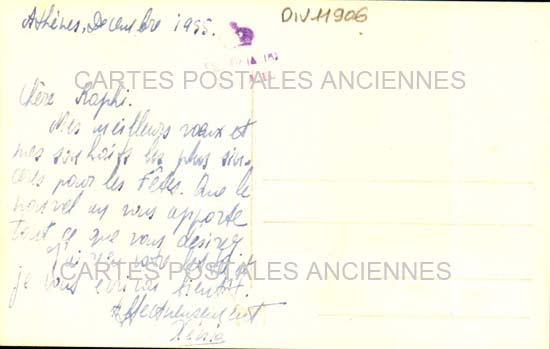 Athènes, Decembre 1955.
DIV11906
CARTES POSTALES ANCIENNES
Chère Raphi.
Mes meilleurs vœux et
mes souhaits les plus sin-
cères pour les Fêtes. Que le
nouvel an vous apporte
tout ce que vous désirez
CARTES POSTALES ANCIENNES
je vous écrirai bientôt.
Affectueusement
Xénia